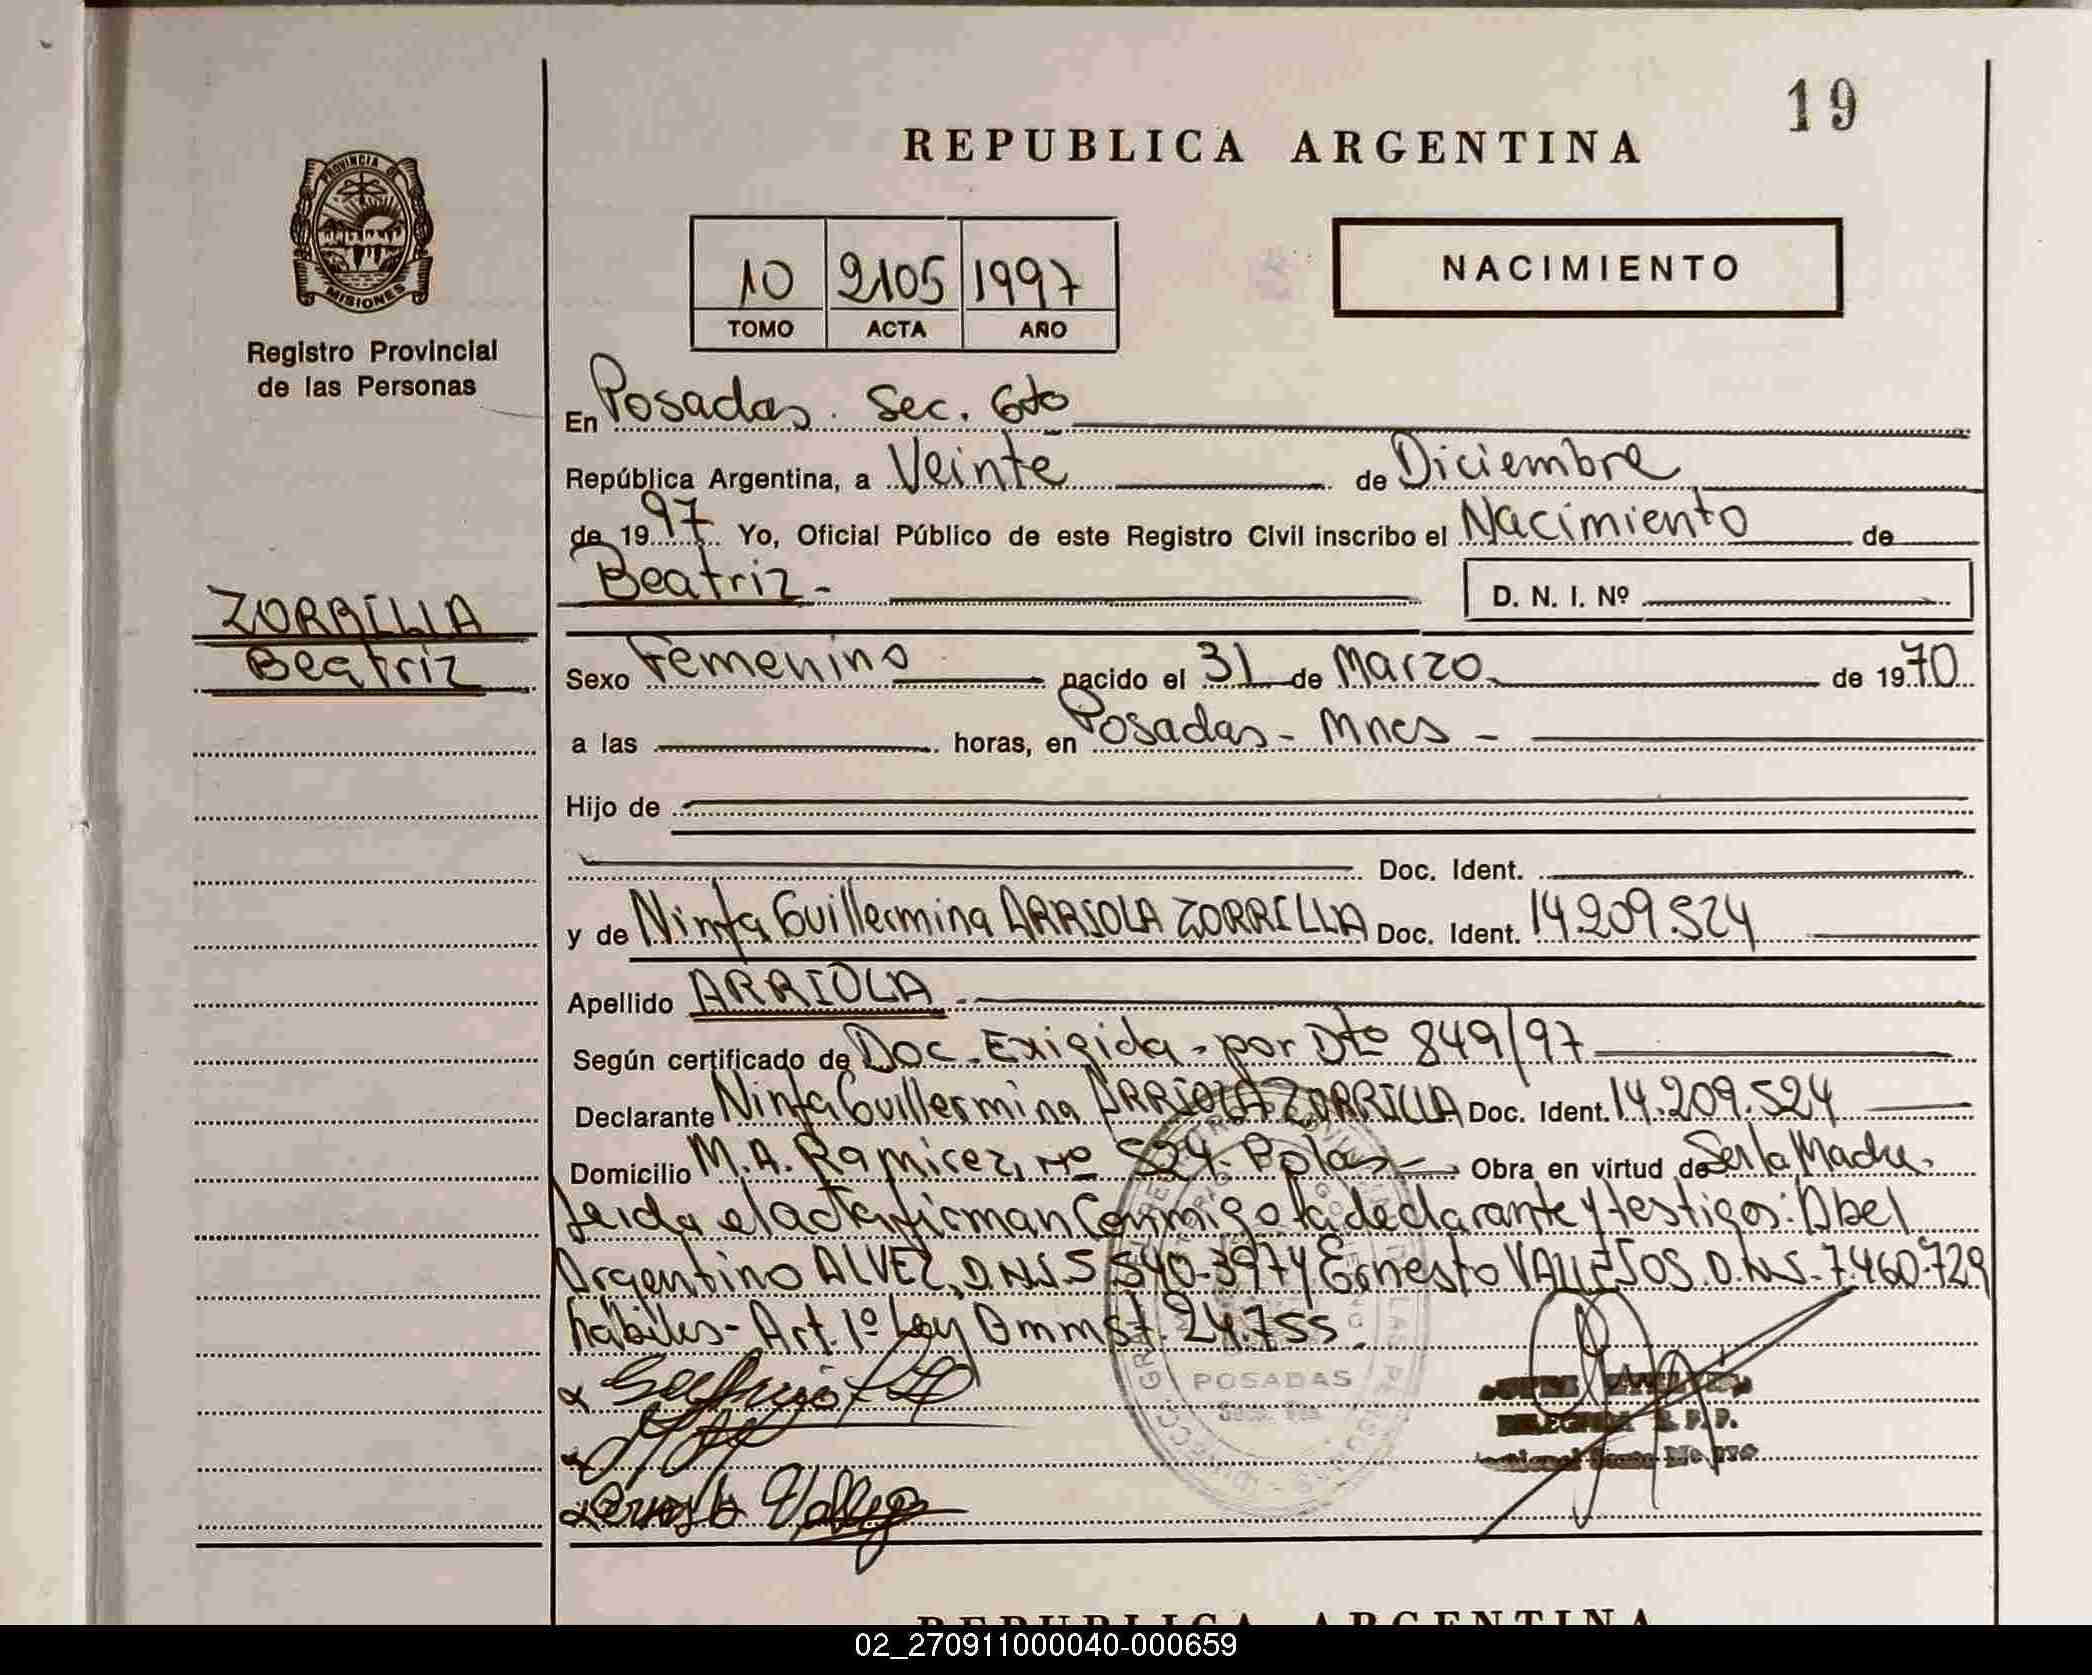 19
REPUBLICA ARGENTINA
PROVINCIA DE
MISIONES
Registro Provincial
de las Personas
10 2105 1997
TOMO ACTA AÑO
NACIMIENTO
En Posadas. Sec. 6to
República Argentina, a Veinte de Diciembre
de 1997 Yo, Oficial Público de este Registro Civil inscribo el Nacimiento de
Beatriz - D. N. I. Nº
ZORRILLA
Beatriz
Sexo Femenino nacido el 31 de Marzo de 1970
a las horas, en Posadas - Mnes -
Hijo de
Doc. Ident.
y de Ninfa Guillermina ARRIOLA ZORRILLA Doc. Ident. 14.209.524
Apellido ARRIOLA -
Según certificado de Doc. Exigida - por Dto 849/97
Declarante Ninfa Guillermina ARRIOLA ZORRILLA Doc. Ident. 14.209.524
Domicilio M.A. Ramirez, Nº 524 - Pdas - Obra en virtud de Ser la Madre.
Leida el acta firman Conmigo la declarante y testigos: Abel
Argentino ALVEZ, D.N.I. 5.540.397 y Ernesto VALLEJOS. D.N.I. 7.460.729
habiles - Art. 1º Ley 24.755.
POSADAS
Ernesto Vallejo
REPUBLICA ARGENTINA
02_270911000040-000659